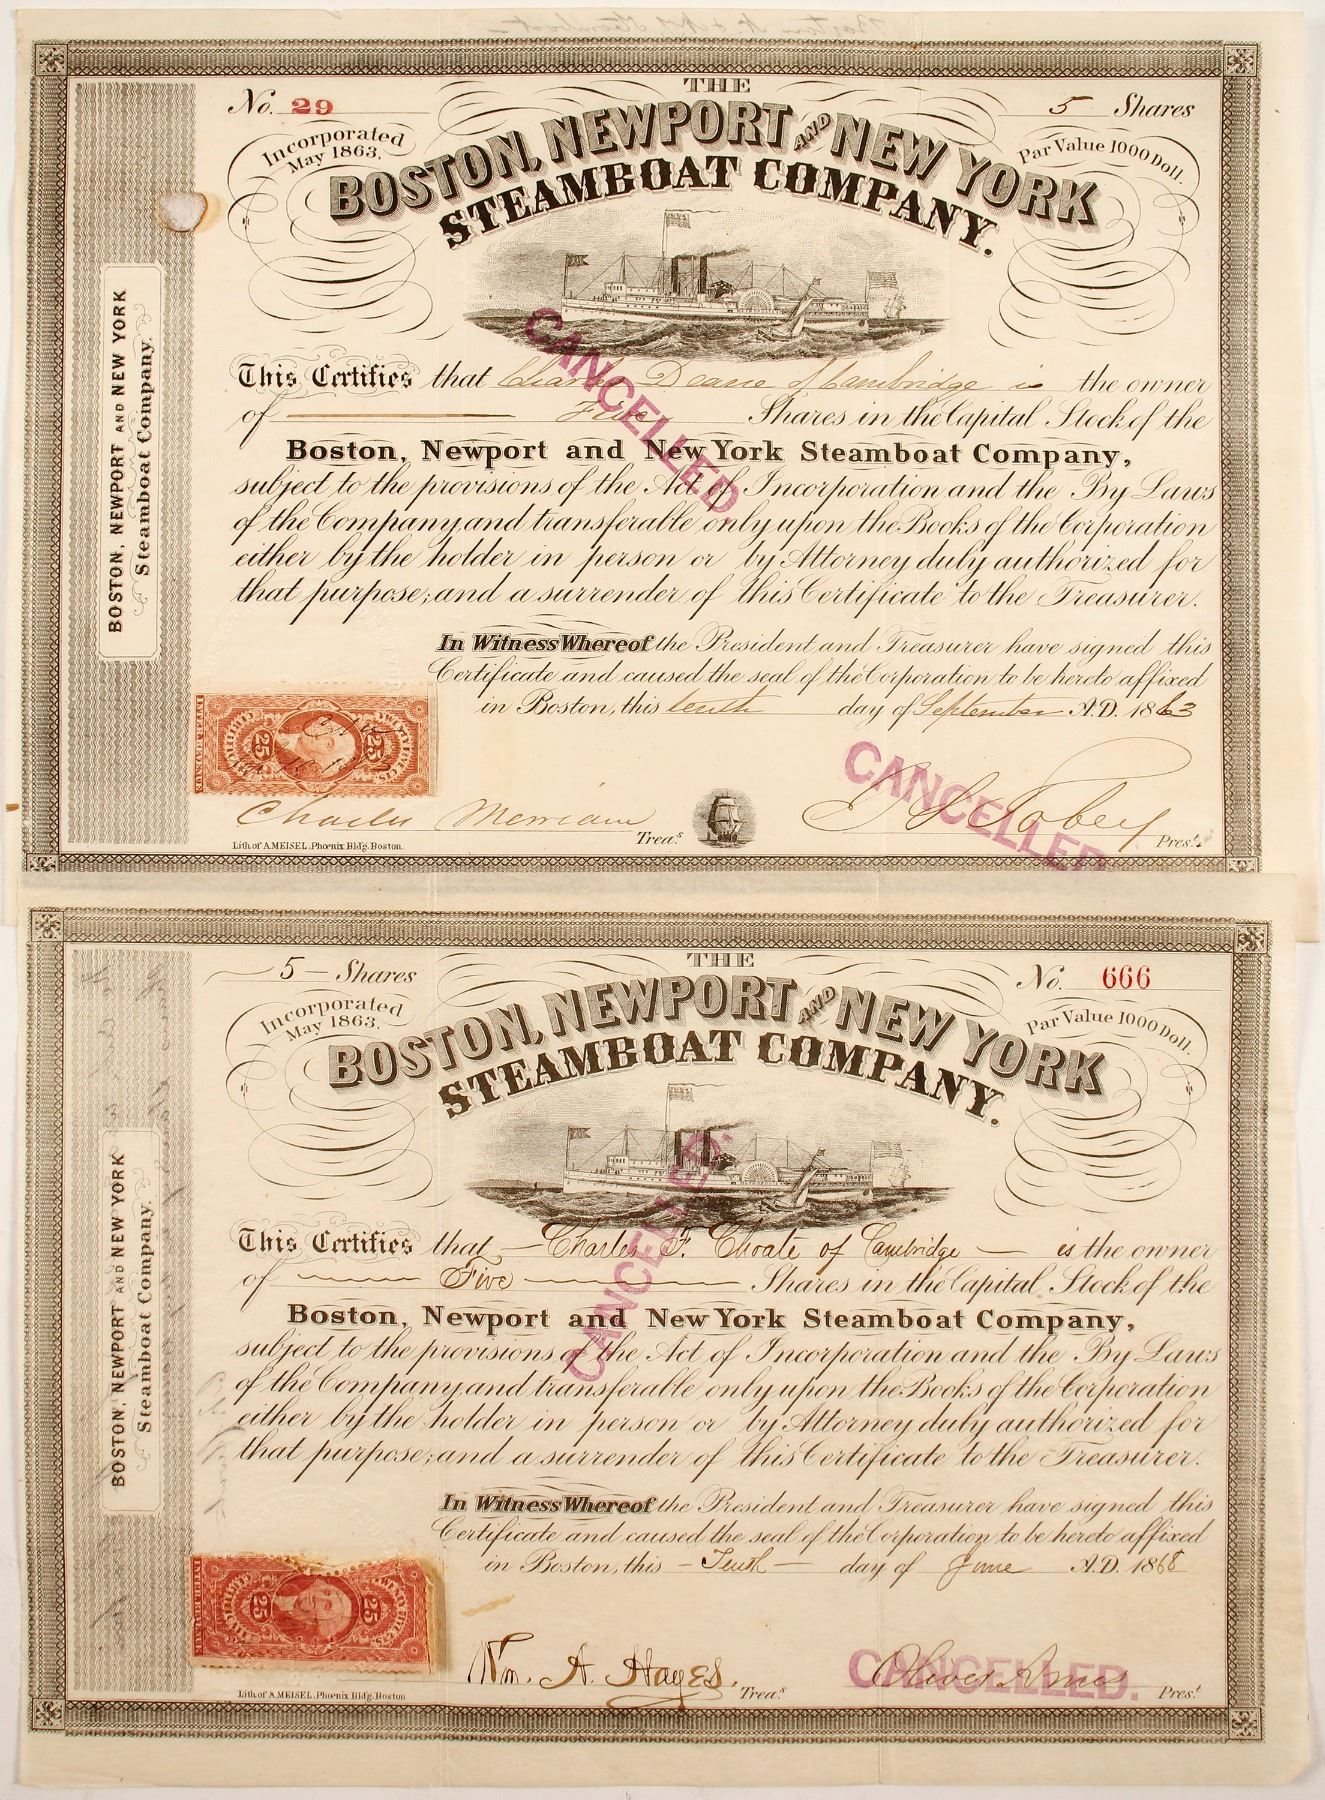 No. 29
5 Shares
Incorporated
May 1863.
Par Value 1000 Doll.
THE
BOSTON, NEWPORT AND NEW YORK
STEAMBOAT COMPANY.
BOSTON, NEWPORT AND NEW YORK
Steamboat Company.
CANCELLED
This Certifies that Charles Deane of Cambridge is the owner
of Five Shares in the Capital Stock of the
Boston, Newport and New York Steamboat Company,
subject to the provisions of the Act of Incorporation and the By Laws
of the Company, and transferable only upon the Books of the Corporation
either by the holder in person or by Attorney duly authorized for
that purpose; and a surrender of this Certificate to the Treasurer.
In Witness Whereof the President and Treasurer have signed this
Certificate and caused the seal of the Corporation to be hereto affixed
in Boston, this tenth day of September A.D. 1863
25 25
CANCELLED
Charles Merriam Treas.
Tobey Prest.
Lith of A. MEISEL, Phœnix Bldg. Boston.
5 Shares
No. 666
Incorporated
May 1863.
Par Value 1000 Doll.
THE
BOSTON, NEWPORT AND NEW YORK
STEAMBOAT COMPANY.
BOSTON, NEWPORT AND NEW YORK
Steamboat Company.
CANCELLED.
This Certifies that Charles F. Choate of Cambridge is the owner
of Five Shares in the Capital Stock of the
Boston, Newport and New York Steamboat Company,
subject to the provisions of the Act of Incorporation and the By Laws
of the Company, and transferable only upon the Books of the Corporation
either by the holder in person or by Attorney duly authorized for
that purpose; and a surrender of this Certificate to the Treasurer.
In Witness Whereof the President and Treasurer have signed this
Certificate and caused the seal of the Corporation to be hereto affixed
in Boston, this Tenth day of June A.D. 1868
25 25
CANCELLED.
Wm. A. Hayes. Treas.
Oliver Ames Prest.
Lith of A. MEISEL, Phœnix Bldg. Boston